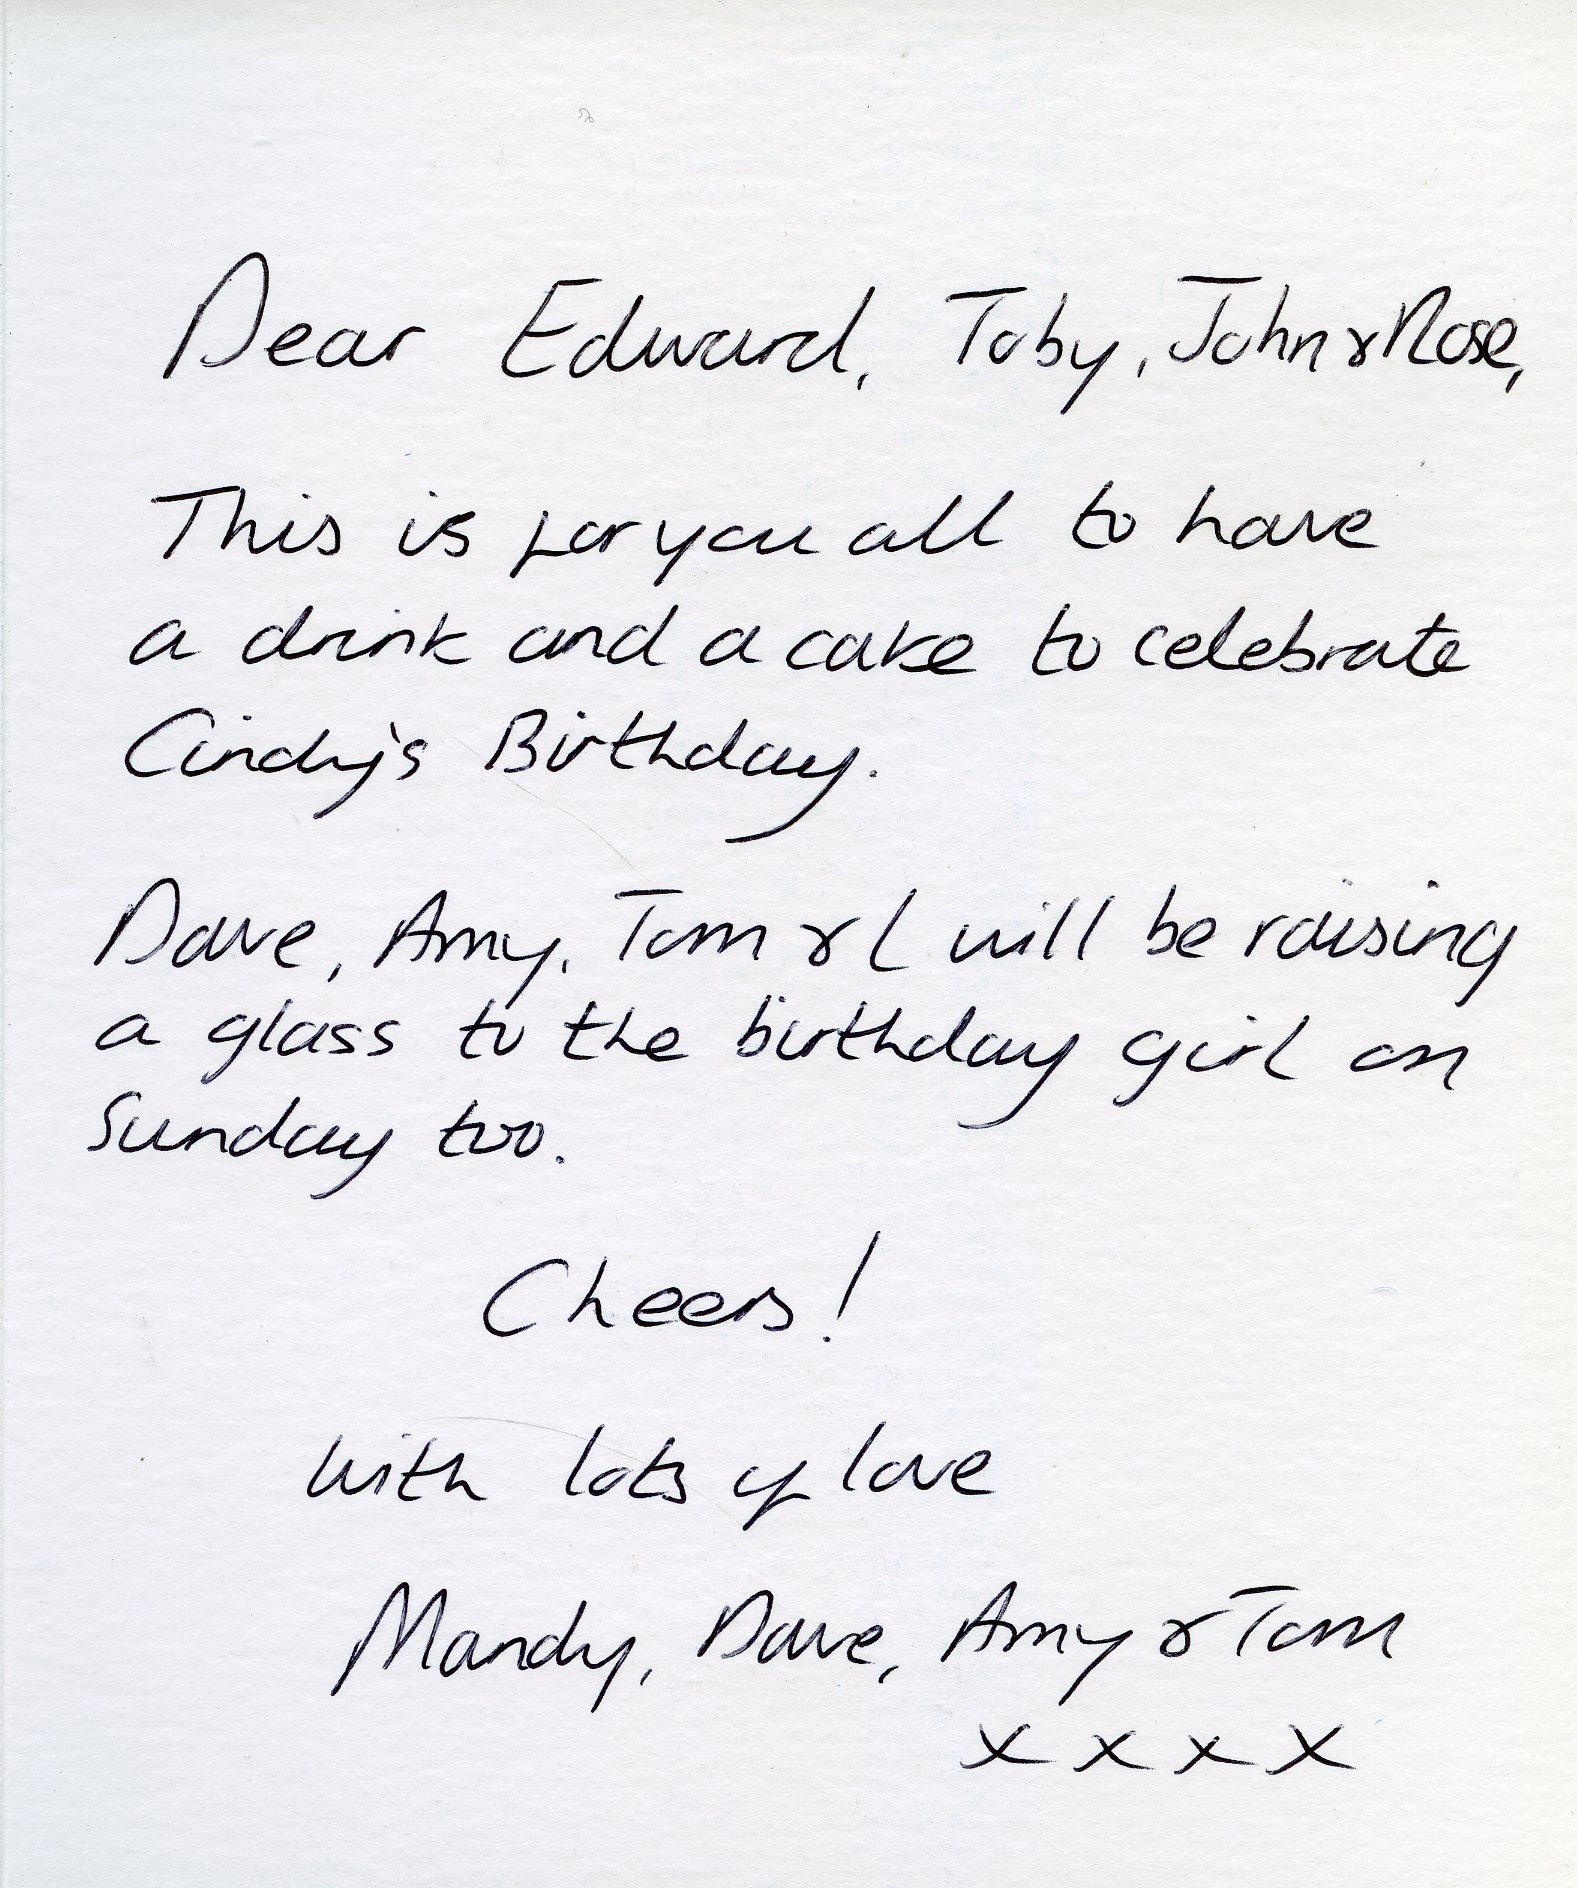 Dear Edward, Toby, John & Rose,
This is for you all to have
a drink and a cake to celebrate
Cindy's Birthday.
Dave, Amy, Tom & I will be raising
a glass to the birthday girl on
Sunday too.
Cheers!
With lots of love
Mandy, Dave, Amy & Tom
x x x x